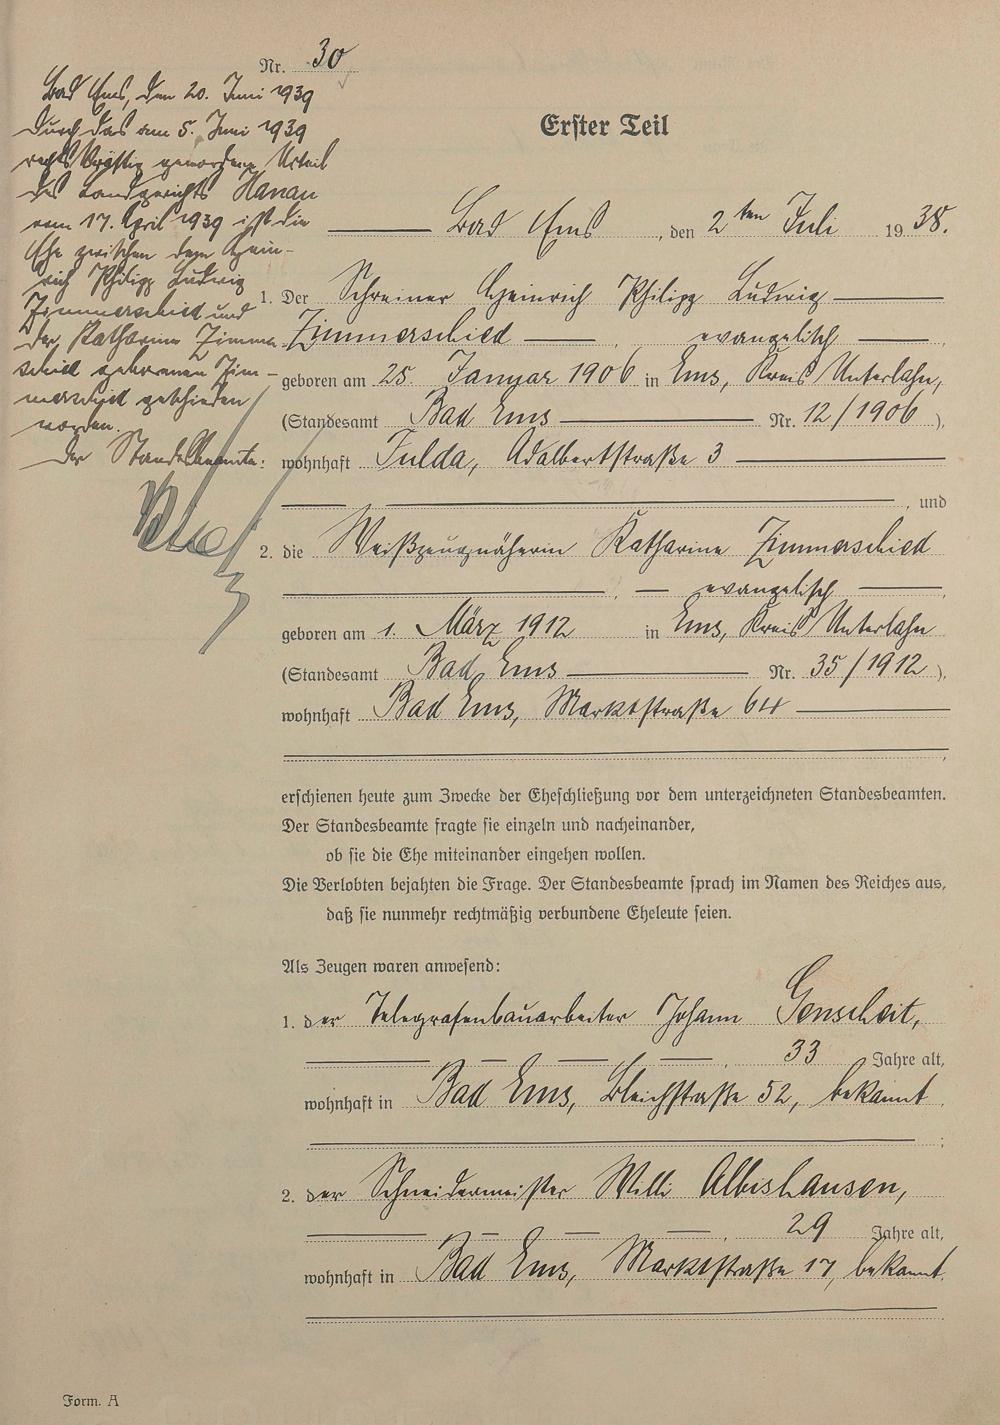 Nr. 30
Bad Ems, den 20. Juni 1939
Durch das am 5. Juni 1939
rechtskräftig gewordene Urteil
des Landgerichts Hanau
vom 17. April 1939 ist die
Ehe zwischen dem Hein-
rich Philipp Ludwig
Zimmerschied und
der Katharina Zimmer-
schied geborenen Zim-
merschied geschieden
worden.
Der Standesbeamte:
Erster Teil
Bad Ems, den 2ten Juli 1938.
1. Der Schreiner Heinrich Philipp Ludwig
Zimmerschied, evangelisch,
geboren am 25. Januar 1906 in Ems, Kreis Unterlahn,
(Standesamt Bad Ems Nr. 12/1906),
wohnhaft Fulda, Adalbertstraße 3
, und
2. die Weißzeugnäherin Katharine Zimmerschied
, evangelisch,
geboren am 1. März 1912 in Ems, Kreis Unterlahn
(Standesamt Bad Ems Nr. 35/1912),
wohnhaft Bad Ems, Marktstraße 64
,
erschienen heute zum Zwecke der Eheschließung vor dem unterzeichneten Standesbeamten.
Der Standesbeamte fragte sie einzeln und nacheinander,
ob sie die Ehe miteinander eingehen wollen.
Die Verlobten bejahten die Frage. Der Standesbeamte sprach im Namen des Reiches aus,
daß sie nunmehr rechtmäßig verbundene Eheleute seien.
Als Zeugen waren anwesend:
1. der Telegrafenbauarbeiter Johann Genscheit,
, 33 Jahre alt,
wohnhaft in Bad Ems, Bleichstraße 52, bekannt
;
2. der Schneidermeister Willi Albishausen,
, 29 Jahre alt,
wohnhaft in Bad Ems, Marktstraße 17, bekannt.
Form. A